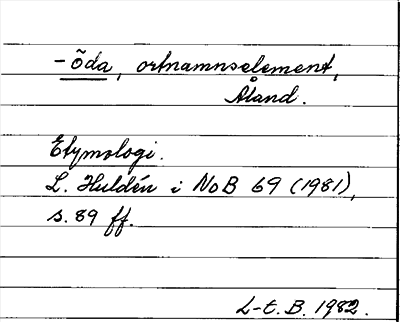 -õda, ortnamnselement,
Åland.
Etymologi.
L. Huldén i NoB 69 (1981),
s. 89 ff.
L-t. B. 1982.